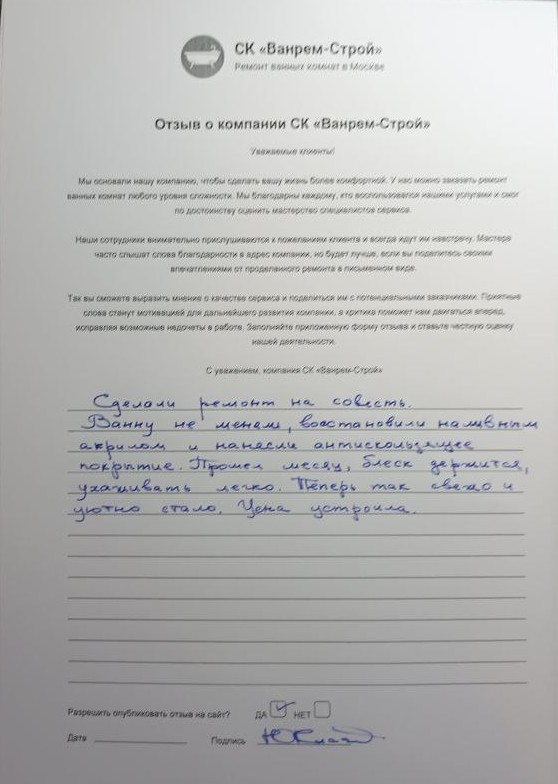 СК «Ванрем-Строй»
Ремонт ванных комнат в Москве
Отзыв о компании СК «Ванрем-Строй»
Уважаемые клиенты!
Мы основали нашу компанию, чтобы сделать вашу жизнь более комфортной. У нас можно заказать ремонт
ванных комнат любого уровня сложности. Мы благодарны каждому, кто воспользовался нашими услугами и смог
по достоинству оценить мастерство специалистов сервиса.
Наши сотрудники внимательно прислушиваются к пожеланиям клиента и всегда идут им навстречу. Мастера
часто слышат слова благодарности в адрес компании, но будет лучше, если вы поделитесь своими
впечатлениями от проделанного ремонта в письменном виде.
Так вы сможете выразить мнение о качестве сервиса и поделиться им с потенциальными заказчиками. Приятные
слова станут мотивацией для дальнейшего развития компании, а критика поможет нам двигаться вперед,
исправляя возможные недочеты в работе. Заполняйте приложенную форму отзыва и ставьте честную оценку
нашей деятельности.
С уважением, компания СК «Ванрем-Строй»
Сделали ремонт на совесть.
Ванну не меняли, восстановили наливным
акрилом и нанесли антискользящее
покрытие. Прошел месяц, блеск держится,
ухаживать легко. Теперь так свежо и
уютно стало. Цена устроила.
Разрешить опубликовать отзыв на сайт? ДА НЕТ
Дата Подпись